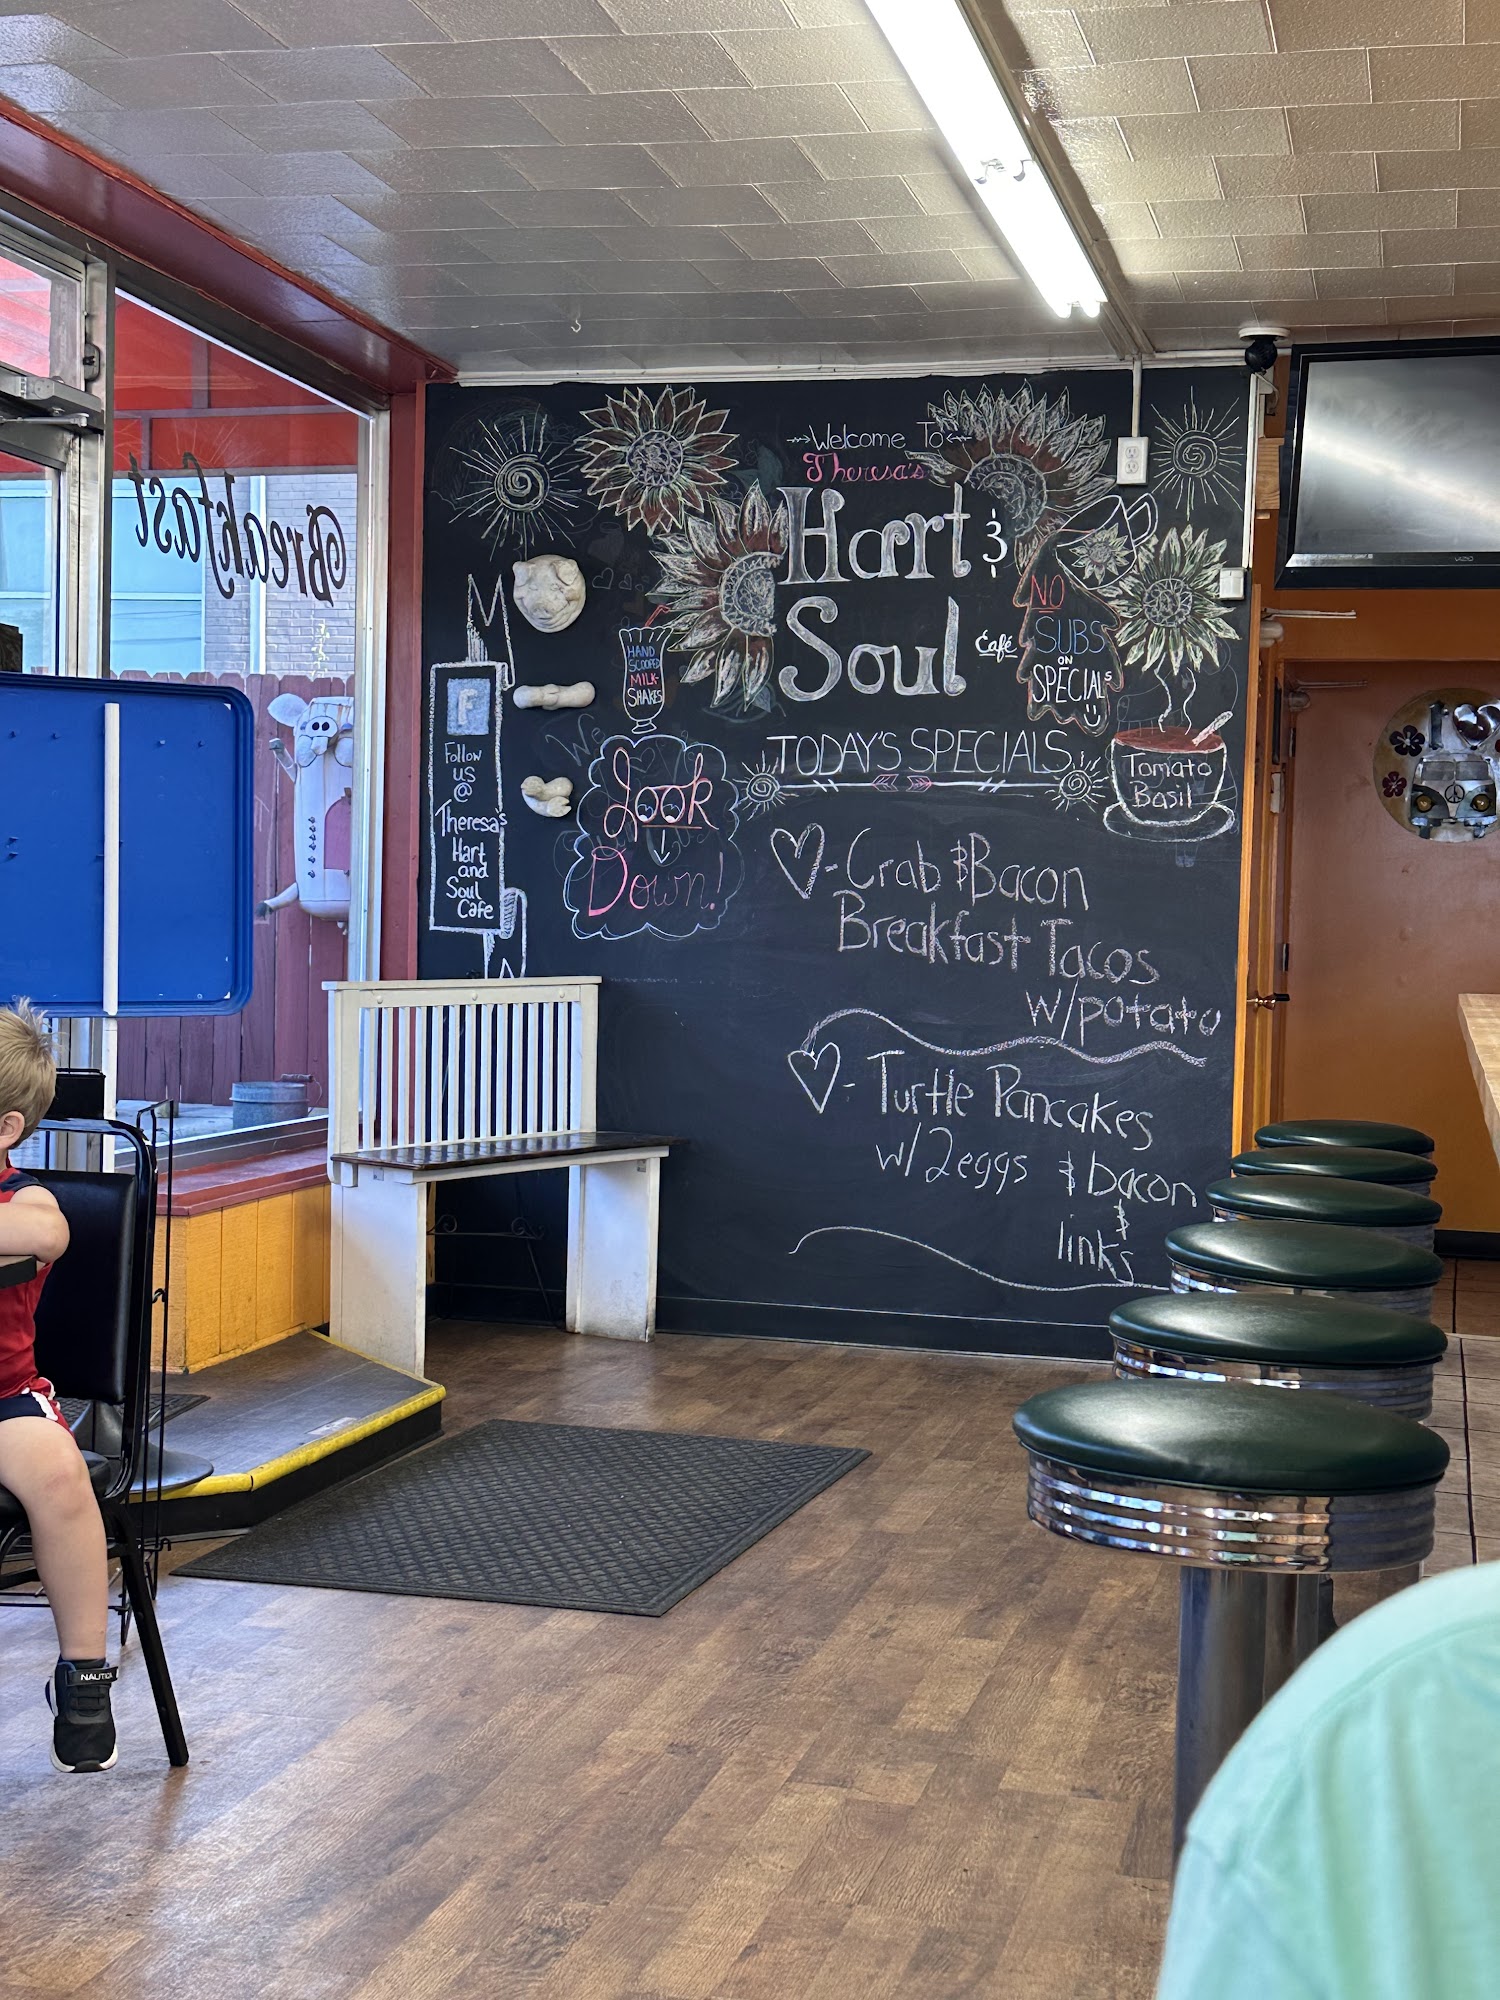 Breakfast
Welcome To
Theresa's
Hart &
Soul
Café
NO
SUBS
on
SPECIALs
HAND
SCOOPED
MILK-
SHAKES
f
Follow
us
@
Theresa's
Hart
and
Soul
Cafe
Look
Down!
TODAY'S SPECIALS
Tomato
Basil
- Crab & Bacon
Breakfast Tacos
w/potato
- Turtle Pancakes
w/ 2 eggs & bacon
&
links
VIZIO
NAUTICA